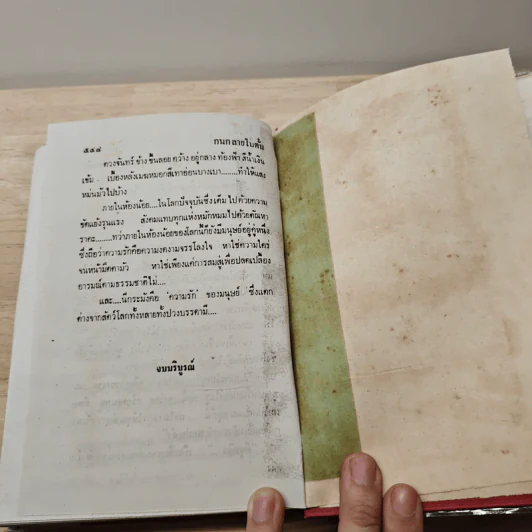 ๕๔๘ กนกลายโบตั๋น
ดวงจันทร์ข้างขึ้นลอยคว้างอยู่กลางท้องฟ้าสีน้ำเงิน
เข้ม.... เบื้องหลังเมฆหมอกสีเทาอ่อนบางเบา........ทำให้แสง
หม่นมัวไปบ้าง
ภายในห้องน้อย....ในโลกปัจจุบันซึ่งเต็มไปด้วยความ
ขัดแย้งรุนแรง สังคมแทบทุกแห่งหมักหมมไปด้วยตัณหา
ราคะ........ทว่าภายในห้องน้อยของโลกนี้ก็ยังมีมนุษย์อยู่คู่หนึ่ง
ซึ่งถือว่าความรักคือความงดงามจรรโลงใจ หาใช่ความใคร่
จนหน้ามืดตามัว หาใช่เพียงแค่การสมสู่เพื่อปลดเปลื้อง
อารมณ์ตามธรรมชาติไม่....
และ....นี่กระมังคือ 'ความรัก' ของมนุษย์ ซึ่งแตก
ต่างจากสัตว์โลกทั้งหลายทั้งปวงบรรดามี....
จบบริบูรณ์